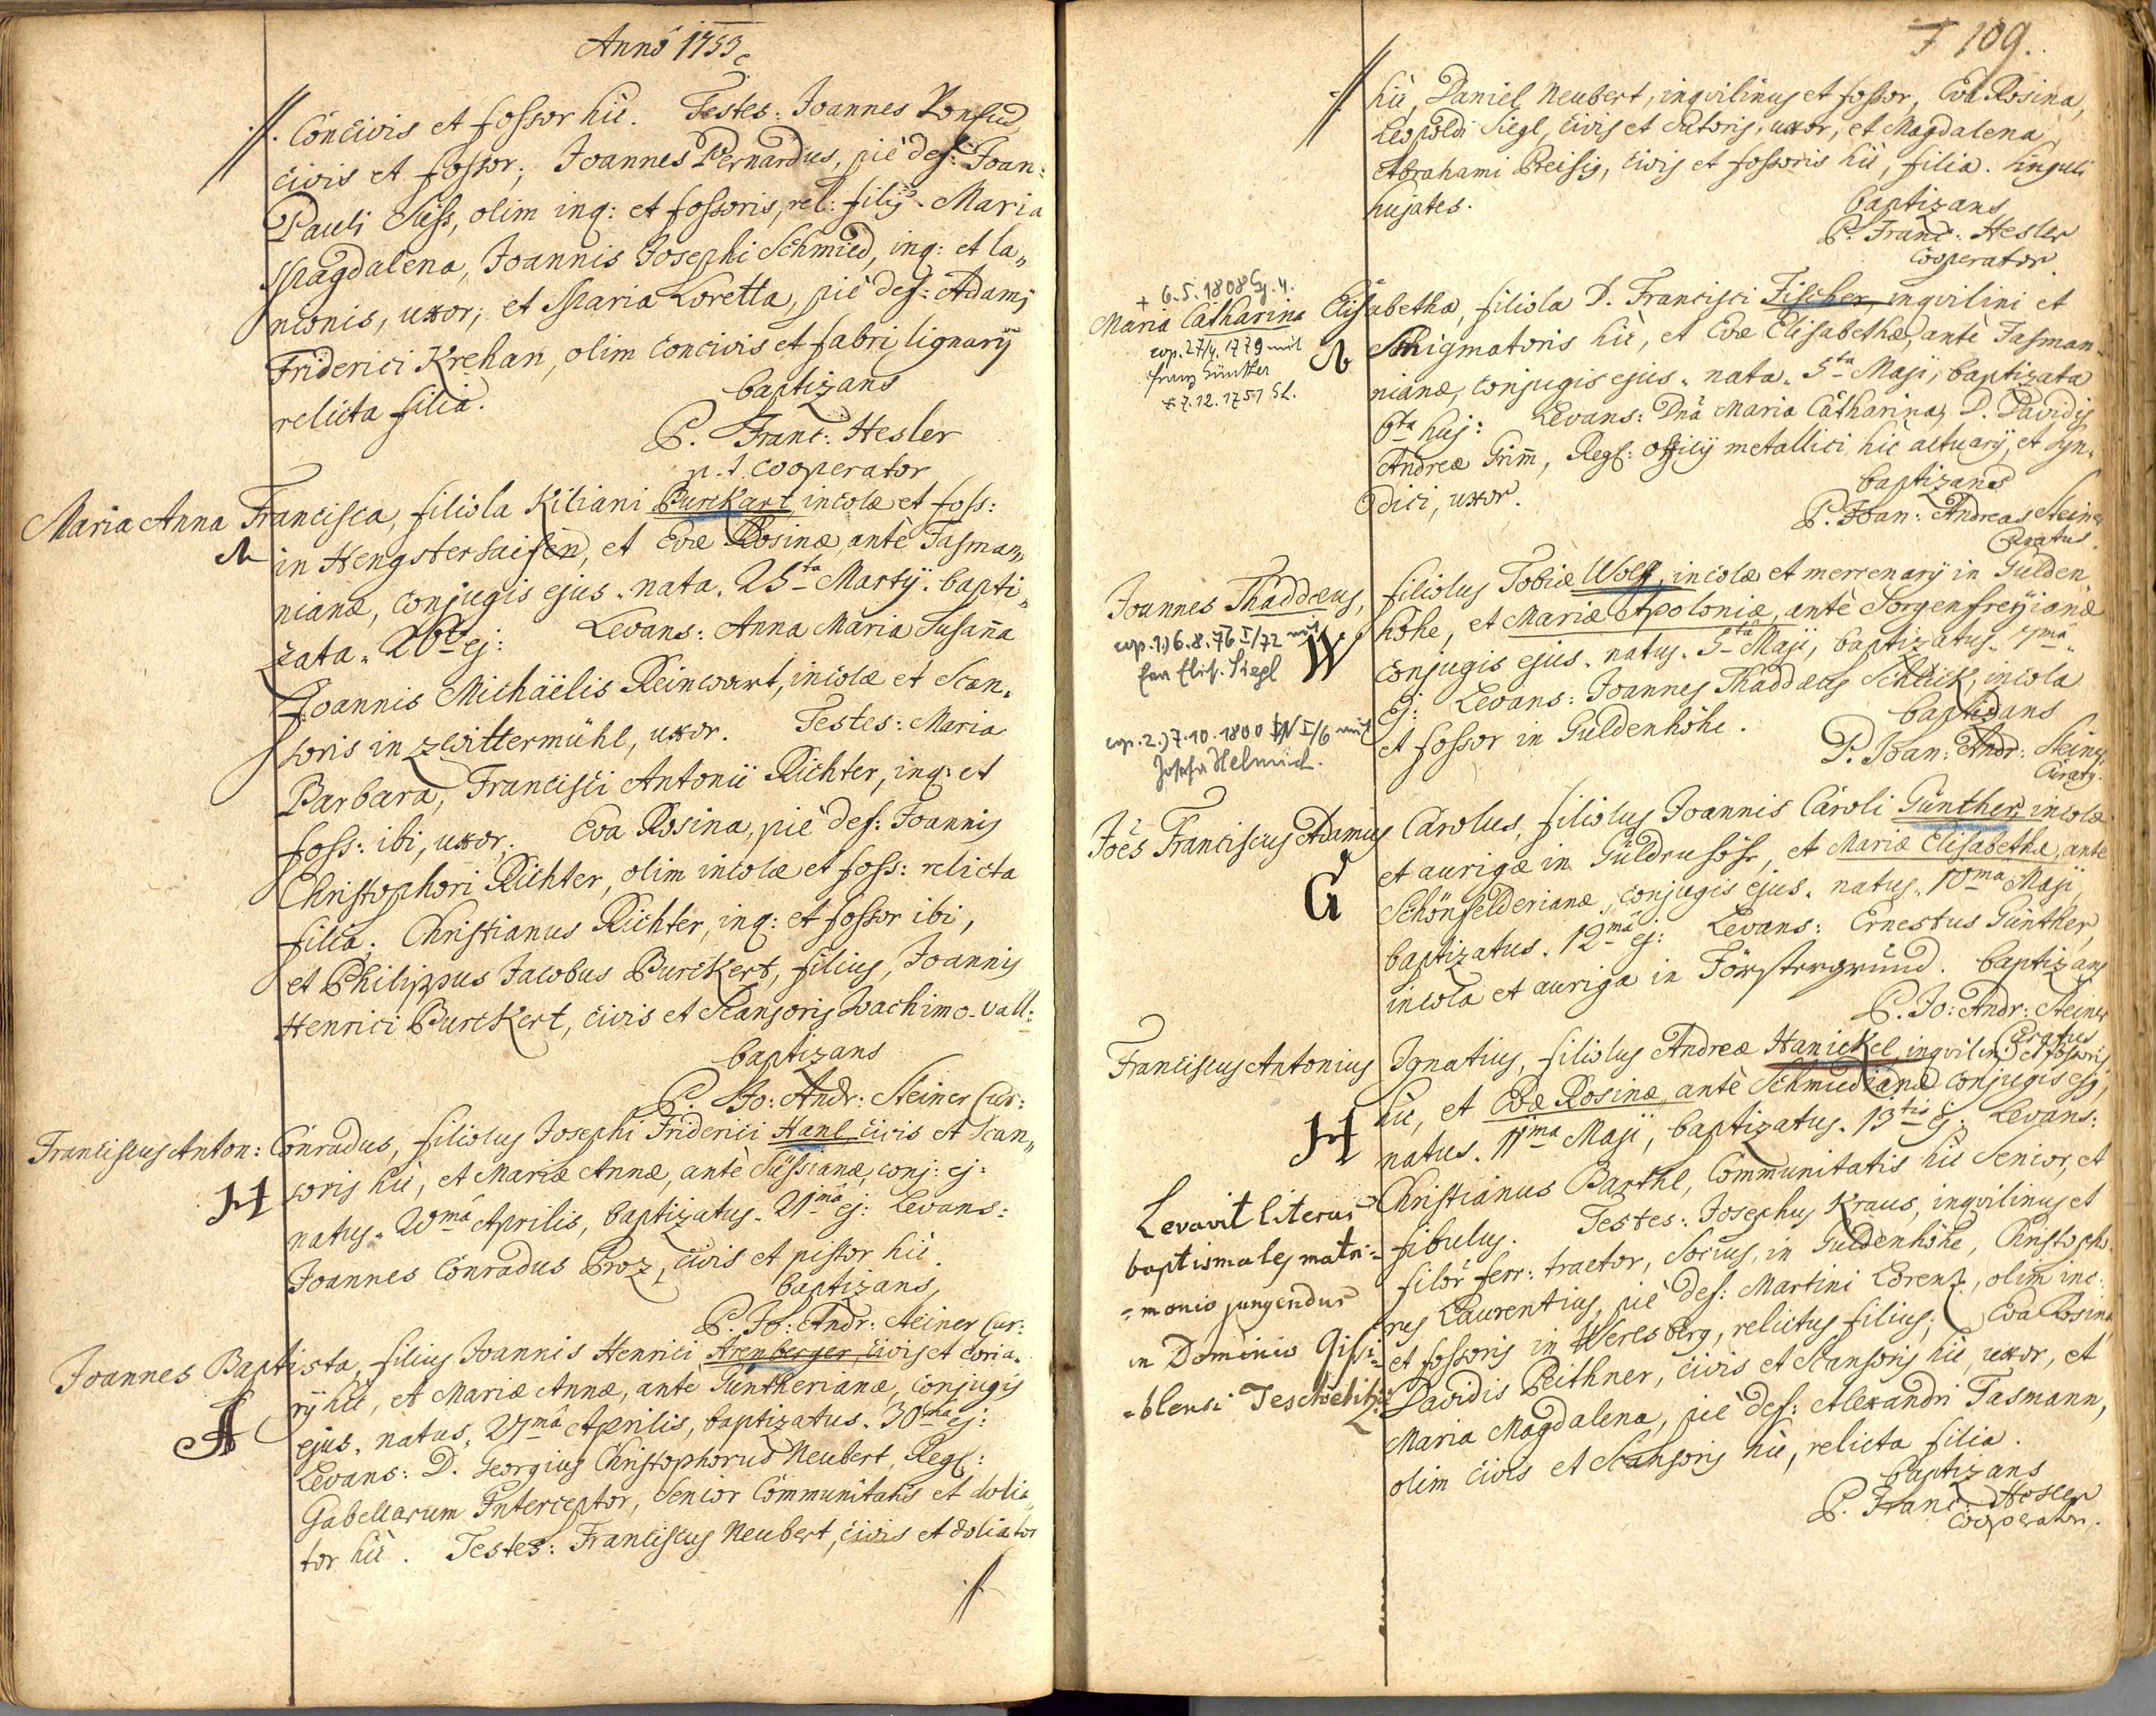 Anno 1753
Concivis et fossor hic. Testes: Joannes
civis et fossor; Joannes Bernardus, pie def: Joan:
Pauli Süss, olim inq: et fossoris, rel: filiy. Maria
Magdalena, Joannis Josephi Schmied, inq: et la„
nionis, uxor; et Maria Loretta, pie def: Adami
Friderici Krehan, olim concivis et fabri lignarÿ
relicta filia.
baptizans
P. Franc: Hesler
p. t. cooperator
Maria Anna Francisca, filiola Kiliani Burckart incolæ et foss:
in Hengstersaifen, et Evæ Rosinæ, antè Tasman„
nianæ, conjugis ejus. nata. 25ta Martÿ. bapti„
zata. 26ta ej: Levans: Anna Maria Susaña
Joannis Michäelis Reinwart, incolæ et Scan„
soris in Zwittermühl, uxor. Testes: Maria
Barbara, Francisci Antonii Richter, inq: et
foss: ibi, uxor; Eva Rosina, pie def: Joannis
Christophori Richter, olim incolæ et foss: relicta
filia; Christianus Richter, inq: et fossor ibi,
et Philippus Jacobus Burckert, filius, Joannis
Henrici Burckert, civis et Scansoris Joachimo-Vall:
baptizans
P. Jo: Andr: Steiner Cur:
Franciscus Anton: Conradus, filiolus Josephi Friderici Hanl civis et Scan„
H soris hic, et Mariæ Annæ, antè Süssianæ, conj: ej:
natus. 20mâ Aprilis, baptizatus. 21mâ ej: Levans:
Joannes Conradus Proz, civis et pistor hic.
baptizans,
P. Jo: Andr: Steiner Cur:
Joannes Baptista, filius Joannis Henrici Arenberger, civis et coria„
A rÿ hic, et Mariæ Annæ, ante Güntherianæ, conjugis
ejus. natus. 27mâ Aprilis, baptizatus. 30ma ej:
Levans: D. Georgius Christophorus Neubert, Reg:
Gabellarum Interceptor, Senior Communitatis et dolia„
tor hic. Testes: Franciscus Neubert, civis et doliator
109.
hic, Daniel Neubert, inqvilinus et fossor, Eva Rosina,
Leopoldi Siegl, civis et Sutoris, uxor, et Magdalena,
Abrahami Preisig, civis et fossoris hic, filia. singuli
hujates.
baptizans
P. Franc: Hesler
Cooperator.
+ 6.5.1808
Maria Catharina Elisabetha, filiola D. Francisci Fischer, inqvilini et
cop. 27/4. 1779 mit
Franz Günther
* 7.12.1751
hic, et Evæ Elisabethæ, antè Tasman„
nianæ, conjugis ejus. nata. 5ta Maji, baptizata
6ta huj: Levans: Dnâ Maria Catharina, D. Davidis
Andreæ Grim̄, Reg: officÿ metallici hic actuarÿ, et Syn„
dici, uxor.
baptizans
P. Joan: Andreas Steiner
Curatus.
Joannes Thaddæus, filiolus Tobiæ Wolf, incolæ et mercenarÿ in Gülden„
höhe, et Mariæ Apoloniæ, antè Sorgenfreÿianæ
cop. 1) 6.8.76 I/72 mit
Eva Elis. Siegl
W conjugis ejus. natus. 5ta Maji, baptizatus. 7mâ
ej: Levans: Joannes Thaddæus Schlick, incola
et fossor in Güldenhöhe.
cop. 2.) 7.10.1800 IV I/6 mit
Josefa Helmich.
baptizans
P. Joan: Andr: Steiner,
Curatus.
Joës Franciscus Adamus Carolus, filiolus Joannis Caroli Günther, incolæ
et aurigæ in, et Mariæ Elisabethæ, ante
G Schönfelderianæ, conjugis ejus. natus. 10ma Maji,
baptizatus. 12mâ ej: Levans: Ernestus Günther,
incola et auriga in Försterzgründ. baptizans
P. Jo: Andr: Steiner
Curatus
Franciscus Antonius Ignatius, filiolus Andreæ Hanickel, inqvilini et fossoris
hic, et Evæ Rosinæ, antè Schmiedianæ conjugis ej,
H natus. 11ma Maji, baptizatus. 13tia ej: Levans:
Christianus Barthl, Communitatis hic Senior, et
fibulus. Testes: Josephus Kraus, inqvilinus et
filor ferr: tractor, Socius, in Güldenhöhe, Christopho„
rus Laurentius, pie def: Martini Lorenz, olim inc:
et fossoris in Weresberg, relictus filius; Eva Rosina
Davidis Peithner, civis et Scansoris hic, uxor, et
Maria Magdalena, pie def: Alexandri Tasmann,
olim civis et Scansoris hic, relicta filia.
baptizans
P. Franc: Hesler
Cooperator.
Levavit literas
baptismales matri=
=monio jungendus
in Dominio Gisi=
=blensi